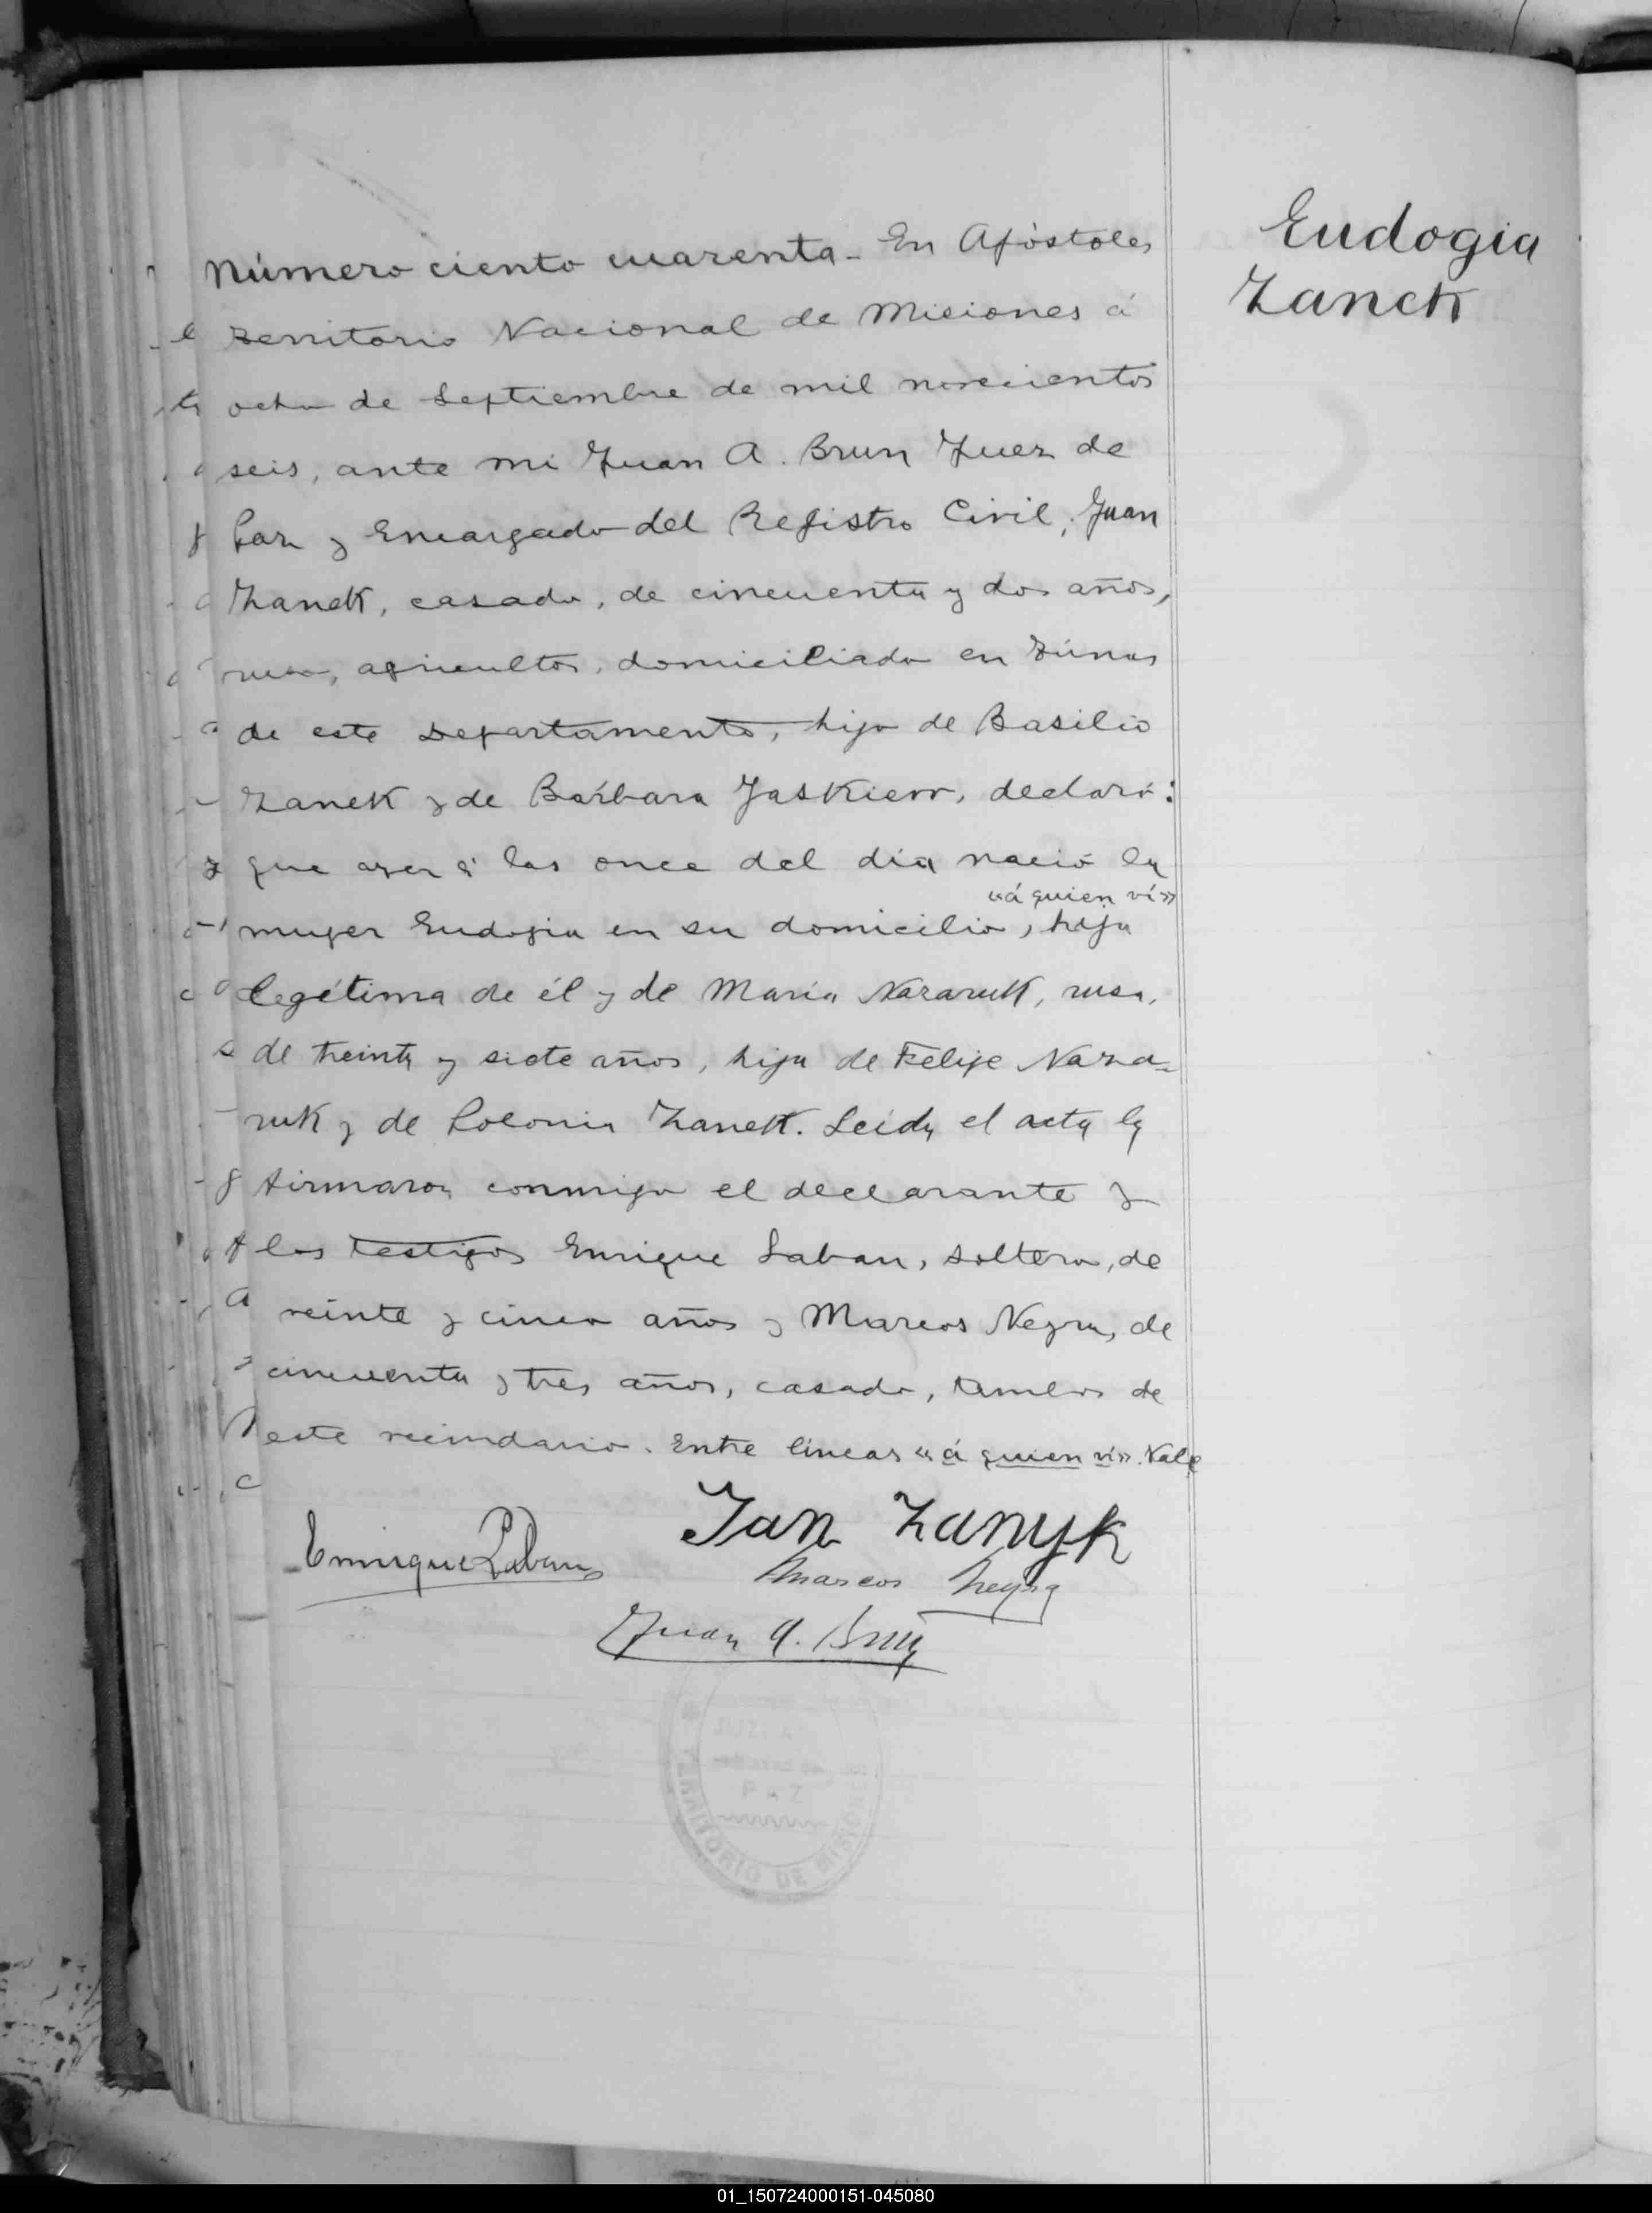 Eudogia
Zanek
Número ciento cuarenta. En Apóstoles
Territorio Nacional de Misiones á
ocho de Septiembre de mil novecientos
seis, ante mi Juan A. Brun Juez de
Paz y Encargado del Registro Civil, Juan
Zanek, casado, de cincuenta y dos años,
ruso, agricultor, domiciliado en
de este Departamento, hijo de Basilio
Zanek y de Bárbara Jaskiew, declaró:
que ayer á las once del día nació la
«á quien ví»
mujer Eudogia en su domicilio, hija
legítima de él y de María Nazaruk, rusa,
de treinta y siete años, hija de Felipe Naza=
ruk y de Polonia Zanek. Leida el acta la
firmaron conmigo el declarante y
los testigos Enrique Laban, soltero, de
veinte y cinco años y Marcos Neyra, de
cincuenta y tres años, casado, ambos de
este vecindario. Entre líneas «á quien ví». Vale
Jan Zanyk
Enrique Laban
Marcos Neyra
Juan A. Brun
JUZ
PAZ
TERRITORIO DE MISIONES
01_150724000151-045080